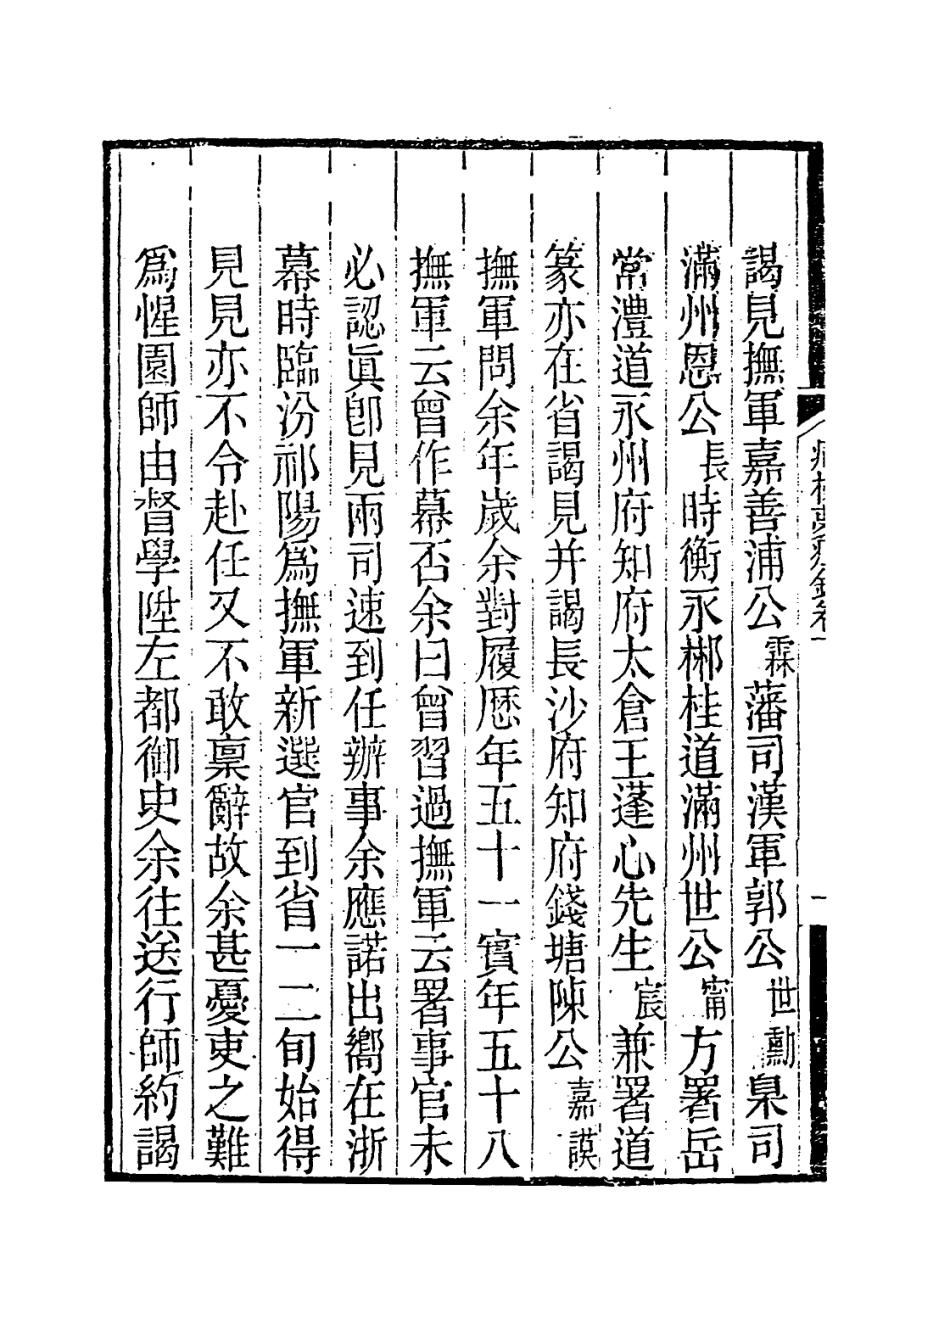 謁見撫軍嘉善浦公霖藩司漢軍郭公世勳臬司
滿州恩公長時衡永郴桂道滿州世公甯方署岳
常澧道永州府知府太倉王蓬心先生宸兼署道
篆亦在省謁見并謁長沙府知府錢塘陳公嘉謨
撫軍問余年歲余對履歷年五十一實年五十八
撫軍云曾作幕否余曰曾習過撫軍云署事官未
必認眞卽見兩司速到任辦事余應諾出嚮在浙
幕時臨汾祁陽爲撫軍新選官到省一二旬始得
見見亦不令赴任又不敢稟辭故余甚憂吏之難
爲惺園師由督學陞左都御史余往送行師約謁